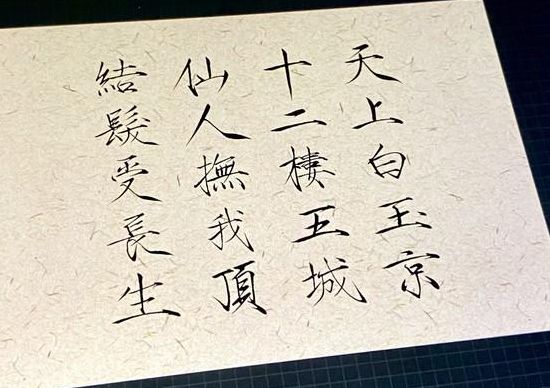 天上白玉京
十二棲五城
仙人撫我頂
結髮受長生